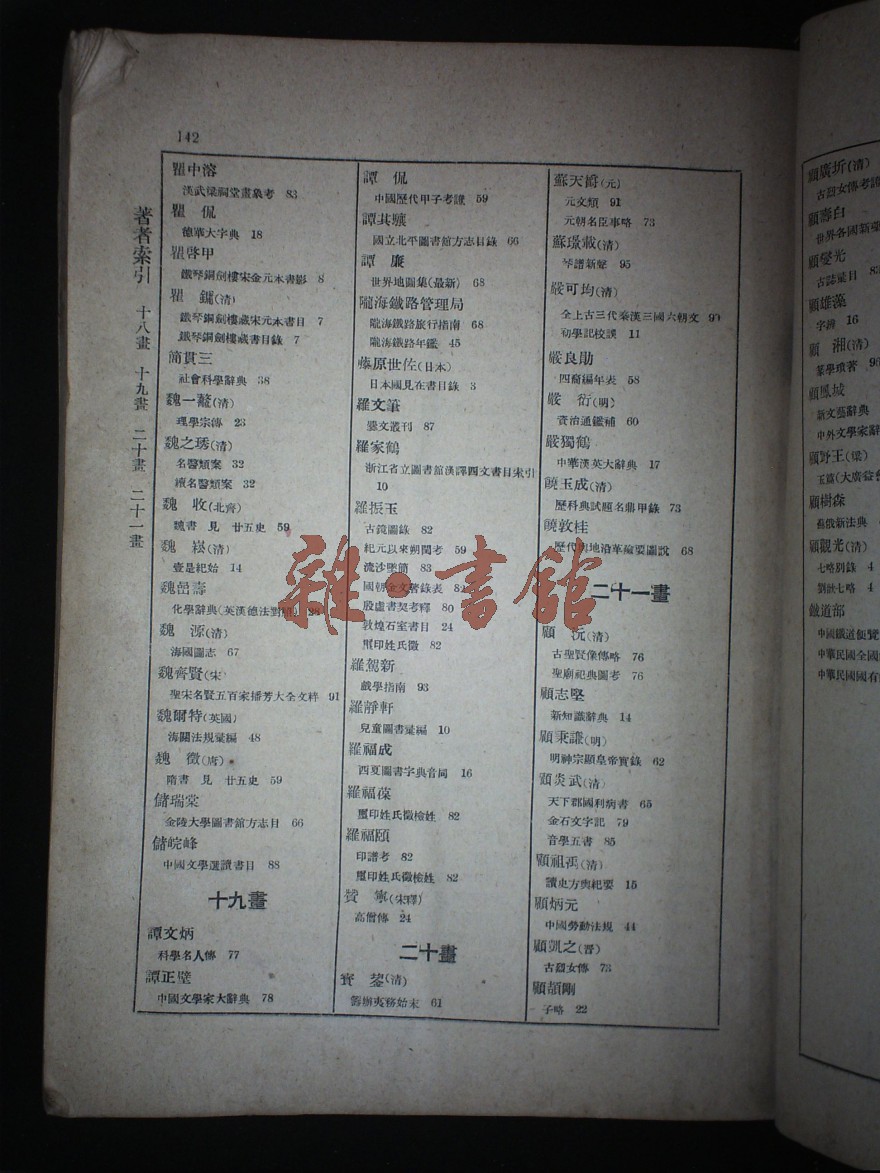 142
著者索引 十八畫 十九畫 二十畫 二十一畫
瞿中溶
漢武梁祠堂畫象考 83
瞿 侃
德華大字典 18
瞿啓甲
鐵琴銅劍樓宋金元本書影 8
瞿 鏞(清)
鐵琴銅劍樓藏宋元本書目 7
鐵琴銅劍樓藏書目錄 7
簡貫三
社會科學辭典 38
魏一鼇(清)
理學宗傳 23
魏之琇(清)
名醫類案 32
續名醫類案 32
魏 收(北齊)
魏書 見 廿五史 59
魏 崧(清)
壹是紀始 14
魏嵒壽
化學辭典(英漢德法對照) 28
魏 源(清)
海國圖志 67
魏齊賢(宋
聖宋名賢五百家播芳大全文粹 91
魏爾特(英國)
海關法規彙編 48
魏 徵(唐)
隋書 見 廿五史 59
儲瑞棠
金陵大學圖書館方志目 66
儲皖峰
中國文學選讀書目 88
十九畫
譚文炳
科學名人傳 77
譚正璧
中國文學家大辭典 78
譚 侃
中國歷代甲子考證 59
譚其驤
國立北平圖書館方志目錄 66
譚 廉
世界地圖集(最新) 68
隴海鐵路管理局
隴海鐵路旅行指南 68
隴海鐵路年鑑 45
藤原世佐(日本)
日本國見在書目錄 3
羅文筆
爨文叢刊 87
羅家鶴
浙江省立圖書館漢譯四文書目索引
10
羅振玉
古鏡圖錄 82
紀元以來朔閏考 59
流沙墜簡 83
國朝金文著錄表 82
殷虛書契考釋 80
敦煌石室書目 24
璽印姓氏徵 82
羅駕新
戲學指南 93
羅靜軒
兒童圖書彙編 10
羅福成
西夏國書字典音同 16
羅福葆
璽印姓氏徵檢姓 82
羅福頤
印譜考 82
璽印姓氏徵檢姓 82
贊 寧(宋釋)
高僧傳 24
二十畫
寶 鋆(清)
籌辦夷務始末 61
蘇天爵(元)
元文類 91
元朝名臣事略 73
蘇璟載(清)
琴譜新聲 95
嚴可均(清)
全上古三代秦漢三國六朝文 90
初學記校誤 11
嚴良勛
四裔編年表 58
嚴 衍(明)
資治通鑑補 60
嚴獨鶴
中華漢英大辭典 17
饒玉成(清)
歷科典試題名鼎甲錄 73
饒敦桂
歷代輿地沿革險要圖說 68
二十一畫
顧 沅(清)
古聖賢像傳略 76
聖廟祀典圖考 76
顧志堅
新知識辭典 14
顧秉謙(明)
明神宗顯皇帝實錄 62
顧炎武(清)
天下郡國利病書 65
金石文字記 79
音學五書 85
顧祖禹(清)
讀史方輿紀要 15
顧炳元
中國勞動法規 44
顧凱之(晉)
古列女傳 73
顧頡剛
子略 22
顧廣圻(清)
古列女傳考證
顧壽白
世界各國新
顧燮光
古誌彙目 83
顧雄藻
字辨 16
顧 湘(清)
篆學瑣著 96
顧鳳城
新文藝辭典
中外文學家辭
顧野王(梁)
玉篇(大廣益會
顧樹森
蘇俄新法典
顧觀光(清)
七略別錄 4
劉歆七略 4
鐵道部
中國鐵道便覽
中華民國全國
中華民國國有
雜·書館